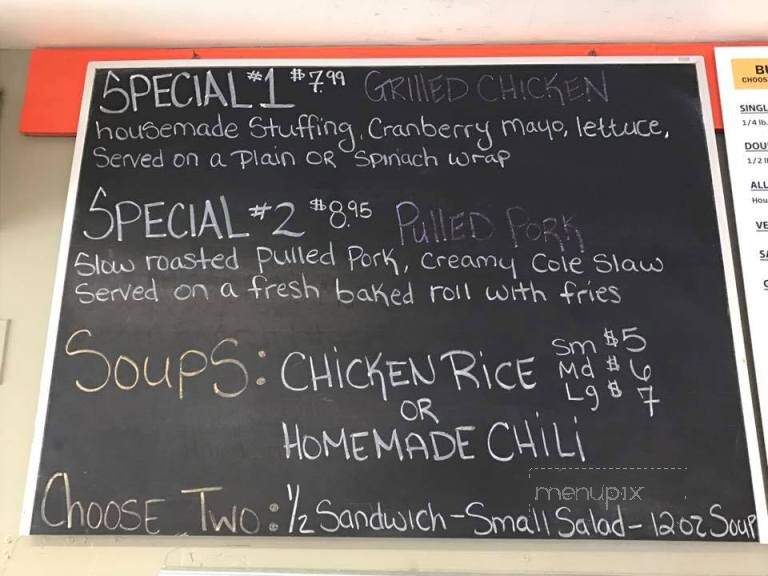 SPECIAL #1 $7.99 GRILLED CHICKEN
housemade Stuffing, Cranberry mayo, lettuce,
Served on a Plain OR Spinach wrap
SPECIAL #2 $8.95 PULLED PORK
Slow roasted Pulled Pork, Creamy Cole Slaw
Served on a fresh baked roll with fries
SOUPS: CHICKEN RICE
Sm $5
Md $6
Lg $7
OR
HOMEMADE CHILI
menupix
CHOOSE TWO: 1/2 Sandwich - Small Salad - 12 oz Soup
SINGL
1/4 lb.
DOU
ALL
Hou
VE